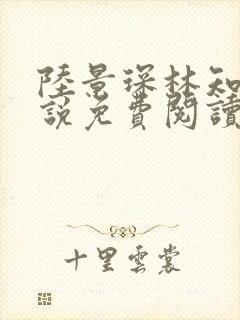 陸景琛林知
說免費閱讀
十里雲裳